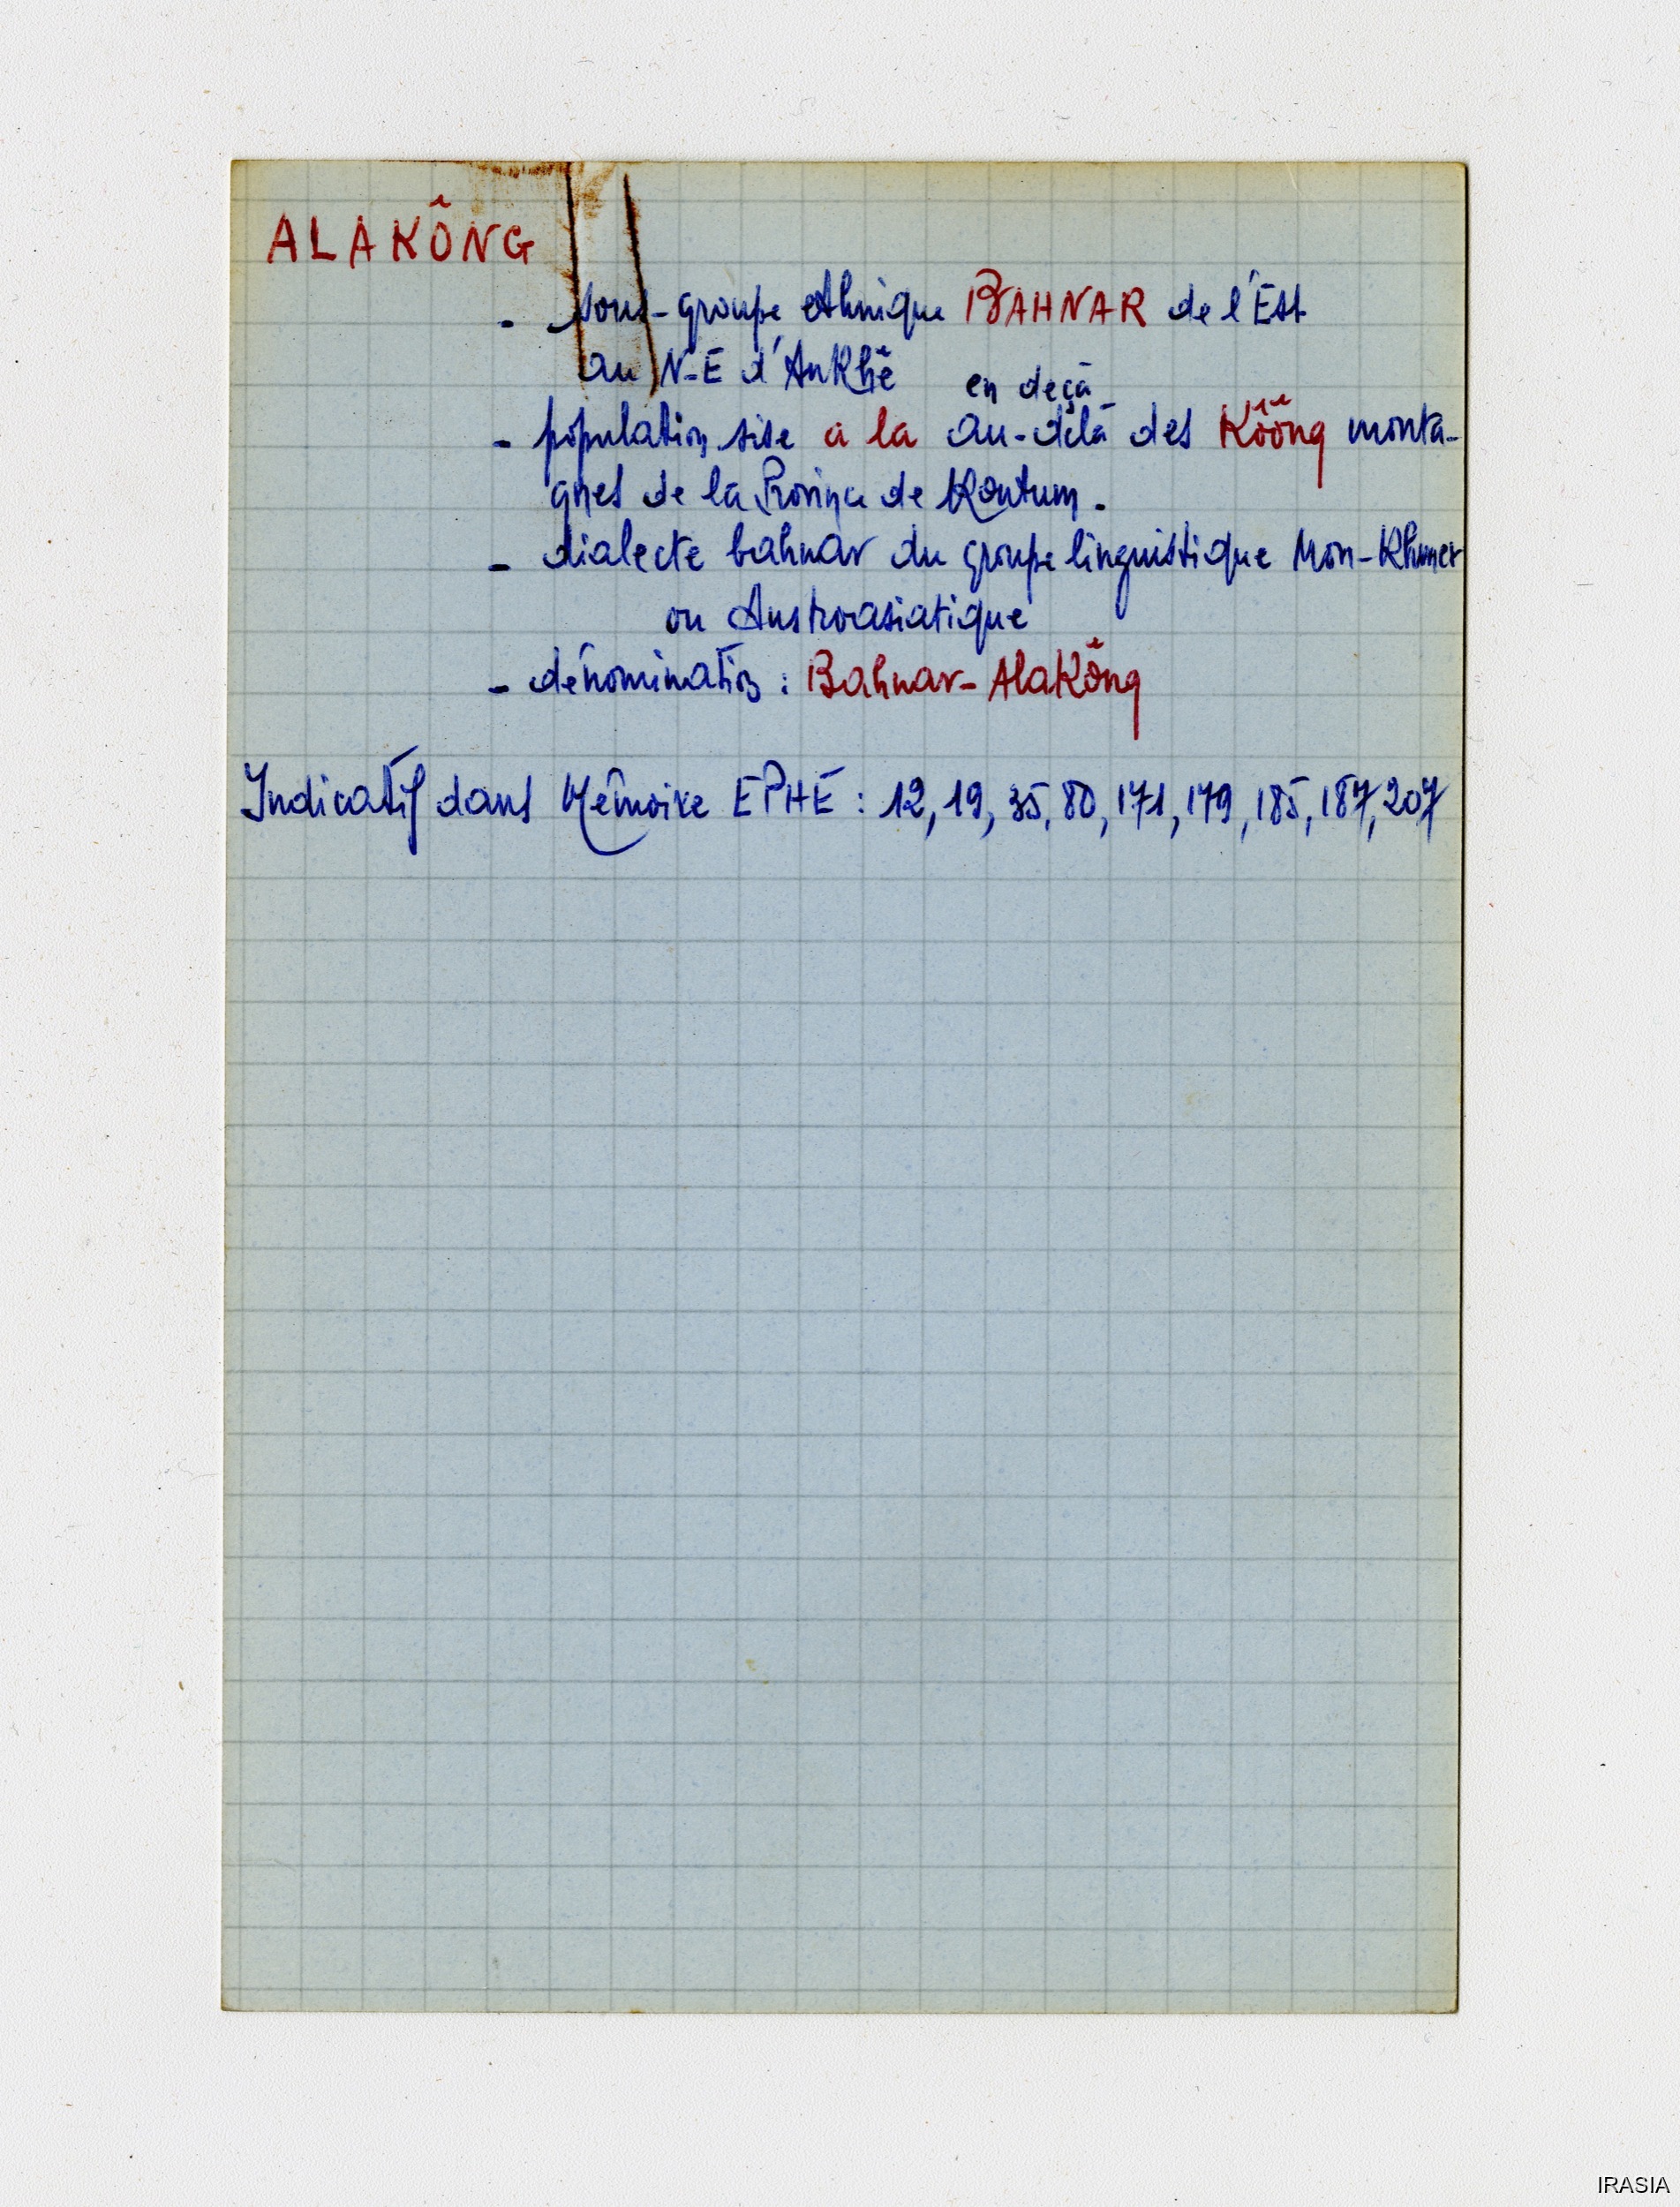 ALAKÔNG
- sous-groupe ethnique BAHNAR de l'Est
au N-E d'AnKhê
en deçà
- population sise a la au-delà des Kôông monta-
gnes de la Province de Kontum.
- dialecte bahnar du groupe linguistique Mon-Khmer
ou Austroasiatique
- dénomination : Bahnar-AlaKông
Indicatif dans Mémoire EPHE : 12, 19, 35, 80, 171, 179, 185, 187, 207
IRASIA